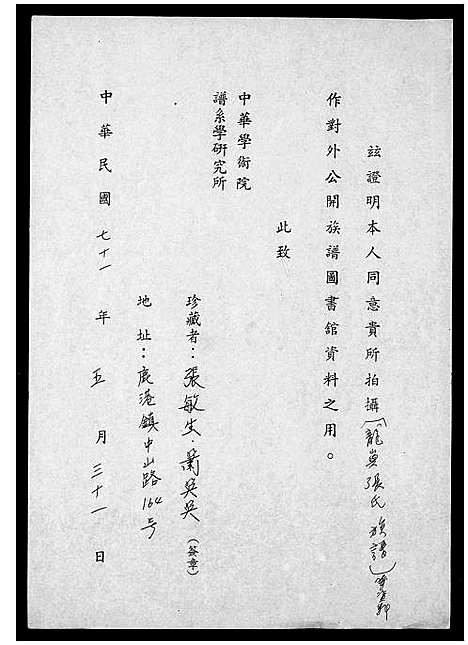 茲證明本人同意貴所拍攝(龍崗張氏族譜)
作對外公開族譜圖書館資料之用。
此致
中華學術院
譜系學研究所
珍藏者:張敏生.蕭吳吳(簽章)
地址:鹿港鎮中山路164号
中華民國七十一年五月三十一日